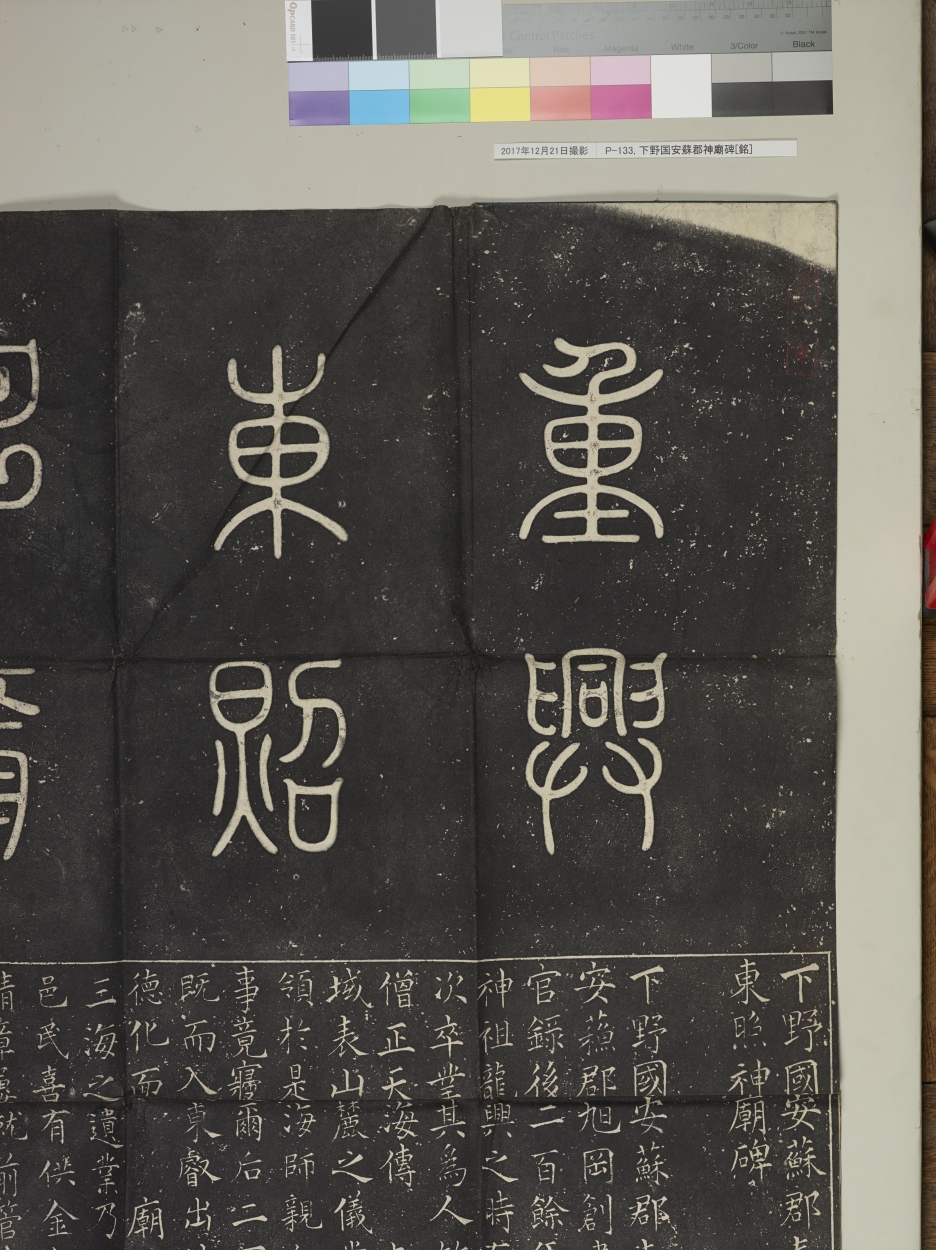 Magenta
White
3/Color
Black
2017年12月21日撮影 P-133, 下野国安蘇郡神廟碑[銘]
重興
東照
下野國安蘇郡
東照神廟碑
下野國安蘇郡
安蘓郡旭岡創
官録後二百餘
神祖龍興之時
次卒業其為人
僧正天海傳
域表山麓之儀
領於是海師親
事竟寤爾后二
既而入東叡出
德化而 廟
三海之遺業乃
邑民喜有供金